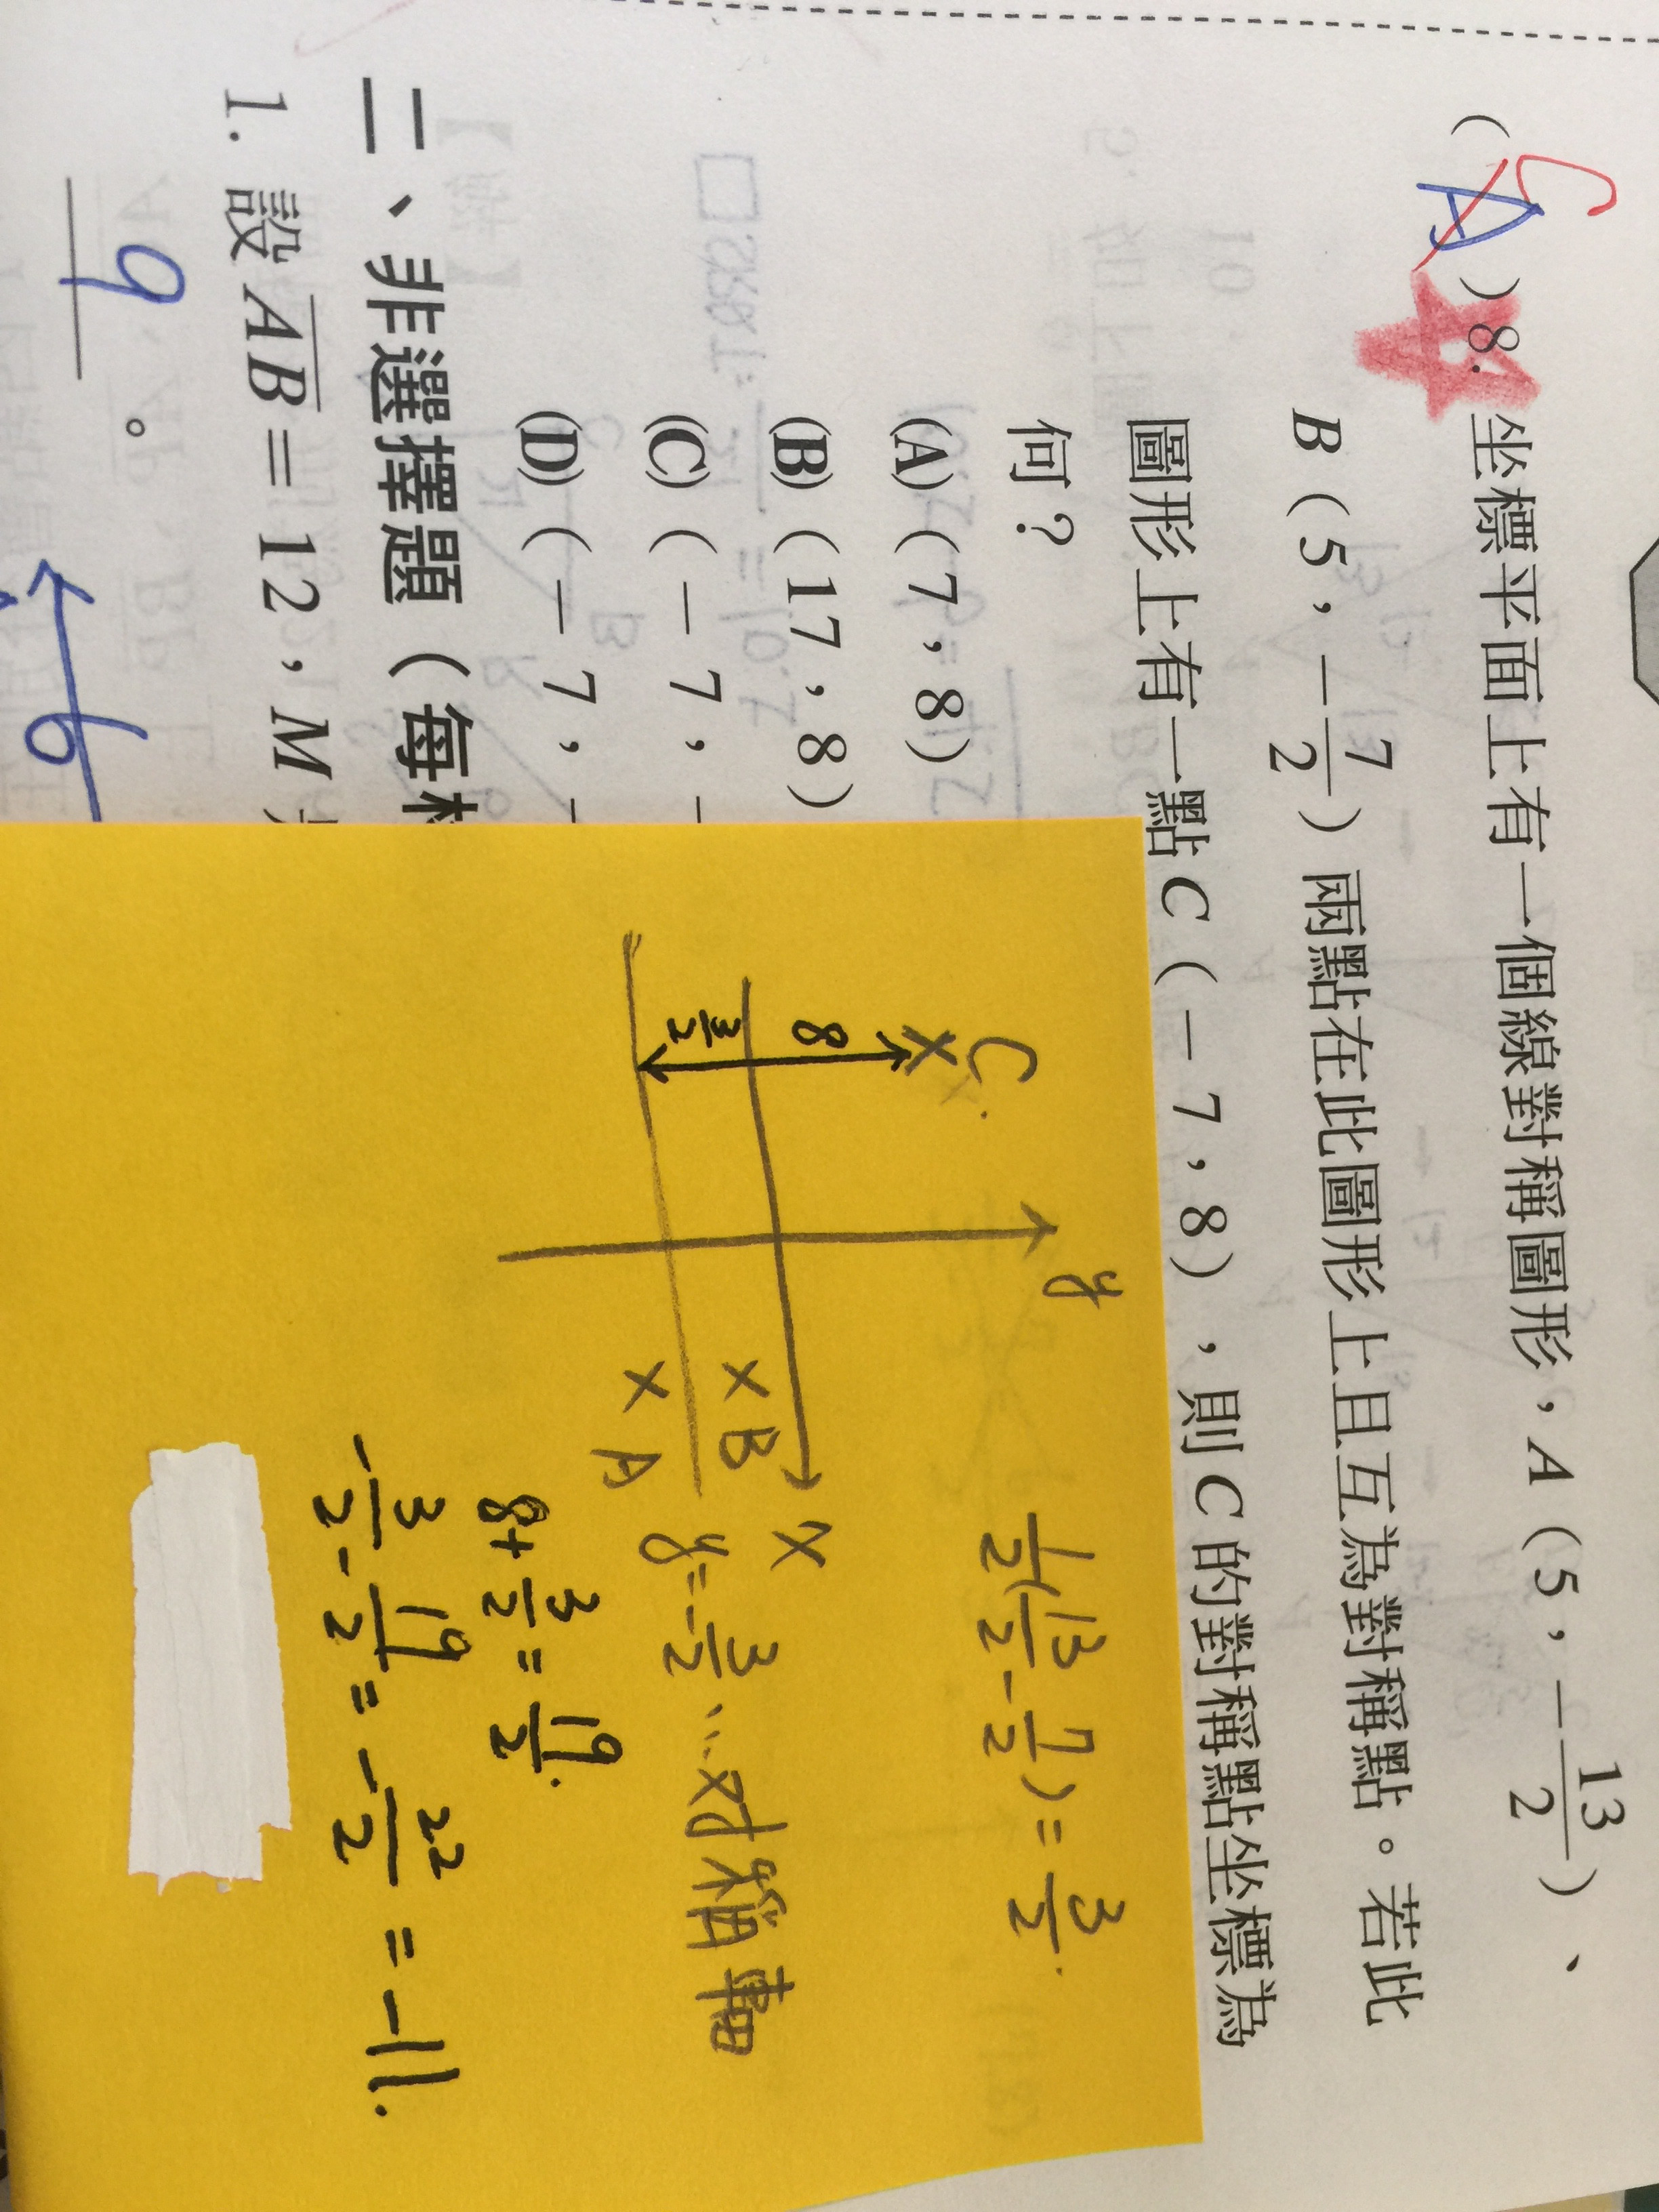 (A) C 8. 坐標平面上有一個線對稱圖形，A（5，－13/2）、
B（5，－7/2）兩點在此圖形上且互為對稱點。若此
圖形上有一點C（－7，8），則C的對稱點坐標為
何？
(A)（7，8）
(B)（17，8）
(C)（－7，－
(D)（－7，－
二、非選擇題（每
1. 設AB＝12，M
9。
6
C
y
8
3/2
B
A
x
1/2(13/2-7/2)=3/2.
y=-3/2、...对稱軸
8+3/2=19/2.
-3/2-19/2=-22/2=-11.